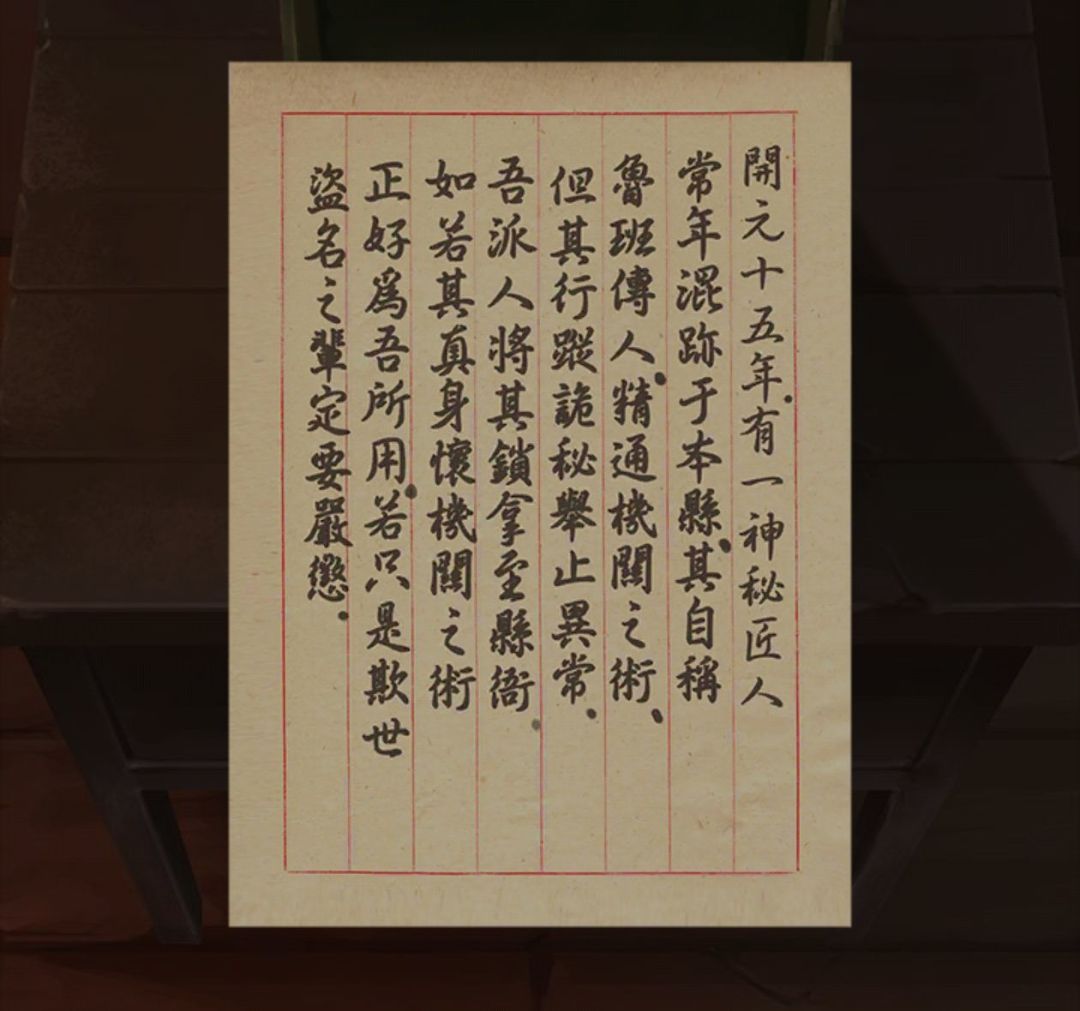 開元十五年.有一神秘匠人
常年混跡于本縣.其自稱
魯班傳人.精通機關之術.
但其行蹤詭秘舉止異常.
吾派人將其鎖拿至縣衙.
如若其真身懷機關之術
正好爲吾所用.若只是欺世
盜名之輩定要嚴懲.